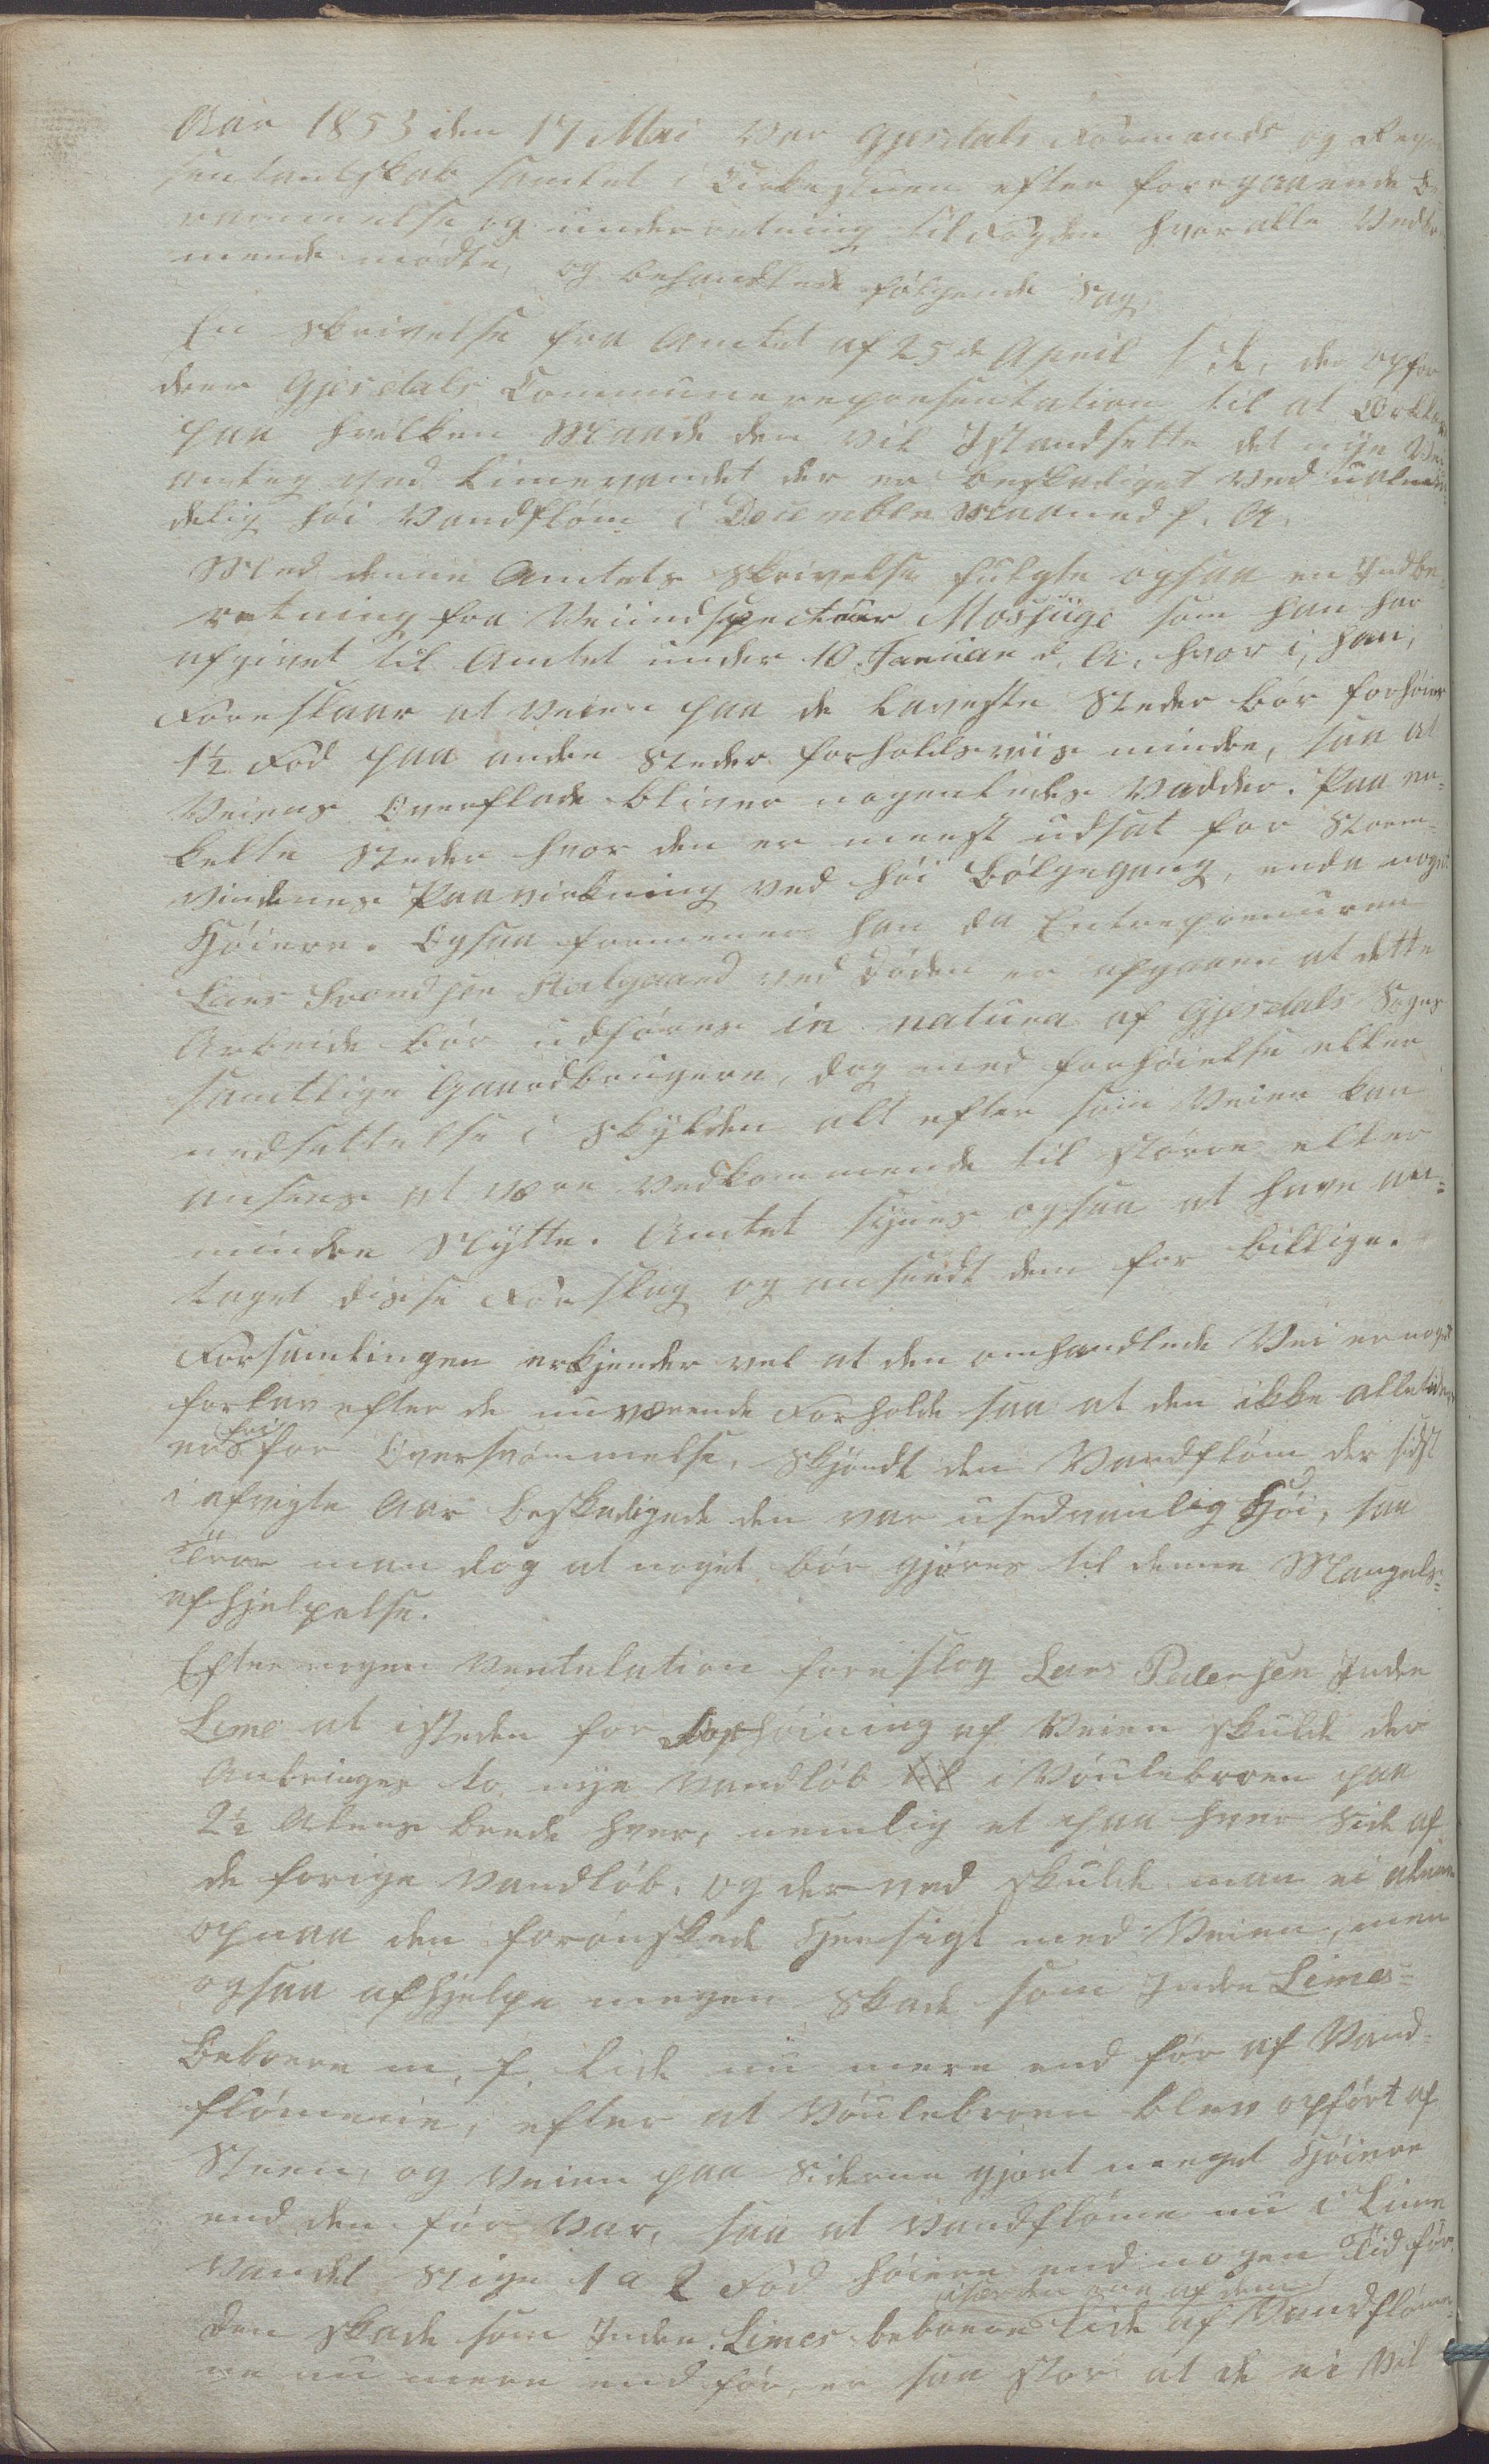 Aar 1853 den 17 Mai Var Gjesdals Formands og Repræ
sentantskab samlet i Kirkestuen efter foregaaende Be
rammelse og underretning til Fogden hvor alle Vedkom
mende mødte, og behandlede følgende Sag.
En Skrivelse fra Amtet af 25de April d. A., der opfor
drer Gjesdals Communerepresentation til at Erklære
paa hvilken Maade den vil Istandsette det nye Vei
anleg ved Limevandet der er beskadiget ved ualmin
delig høi Vandfløm i December Maaned f. A.
Med denne Amtets Skrivelse fulgte ogsaa en Indbe-
retning fra Veiindspecteur Moshüge som han har
afgivet til Amtet under 10. Januar d. A. hvor i, han,
Foreslaar at Veien paa de laveste Steder bør forhøies
1½ Fod paa andre Steder forholdsviis mindre, saa at
Veiens Overflade bliver nogenledes Vadder. Paa en-
kelte Steder hvor den er meest udsat for Storm-
vindenes Paavirkning ved høi Bølgegang, enda noget
Høiere. Ogsaa formener han da Entreprenuren
Lars Svendsen Aalgaard ved Døden er afgaaen at dette
Arbeide bør udføres in natura af Gjesdals Sogns
samtlige Gaardbrugere, dog med forhøielse eller
nedsettelse i Skylden alt efter som Veien kan
ansees at være Vedkommende til større eller
mindre Nytte. Amtet synes ogsaa at have an-
taget disse Forslag og anseedt dem for billige.
Forsamlingen erkjender vel at den omhandlede Vei er noget
forlav efter de nuværende Forholde saa at den ikke alletider
er fri for Oversvømmelse, skjøndt den Vandfløm der sidst
i afvigte Aar beskadigede den var usedvanlig Høi, saa
troer man dog at noget bør gjøres til denne Mangels-
afhjelpelse.
Efter nogen Ventelation foreslog Lars Pedersen Indre
Lime at isteden for Forhøining af Veien skulde der
Anbringes to nye Vandløb i Vøulebroen paa
2½ Alens brede hver, nemlig et paa hver Side af
de forige Vandløb, og derved skulde man ei alene
opnaa den forønskede Hensigt med Veien, men
ogsaa afhjelpe megen Skade som Indre Limes-
Beboere m. f. lide nu mere end før af Vand-
flømene, efter at Vøulebroen blev opført af
Steen, og Veien paa Siderne gjort meget Høiere
end den før var, saa at Vandfløme nu i Lime
Vandet stige 1 a 2 Fod høiere end nogen Tid før.
iser den ene af dem
Den Skade som Indre Limes beboere lide af Vandfløme-
ne nu mere end før, er saa stor at de ei Vil